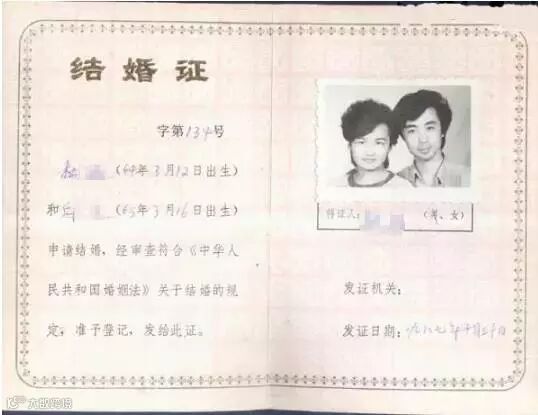 结婚证
字第134号
(64年3月12日出生)
和 (65年3月16日出生)
申请结婚，经审查符合《中华人
民共和国婚姻法》关于结婚的规
定，准予登记，发给此证。
持证人： (男、女)
发证机关：
发证日期：一九八七年十月二十日
大欧跨境